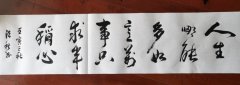 人生
哪能
多如
意万
事只
求半
称心